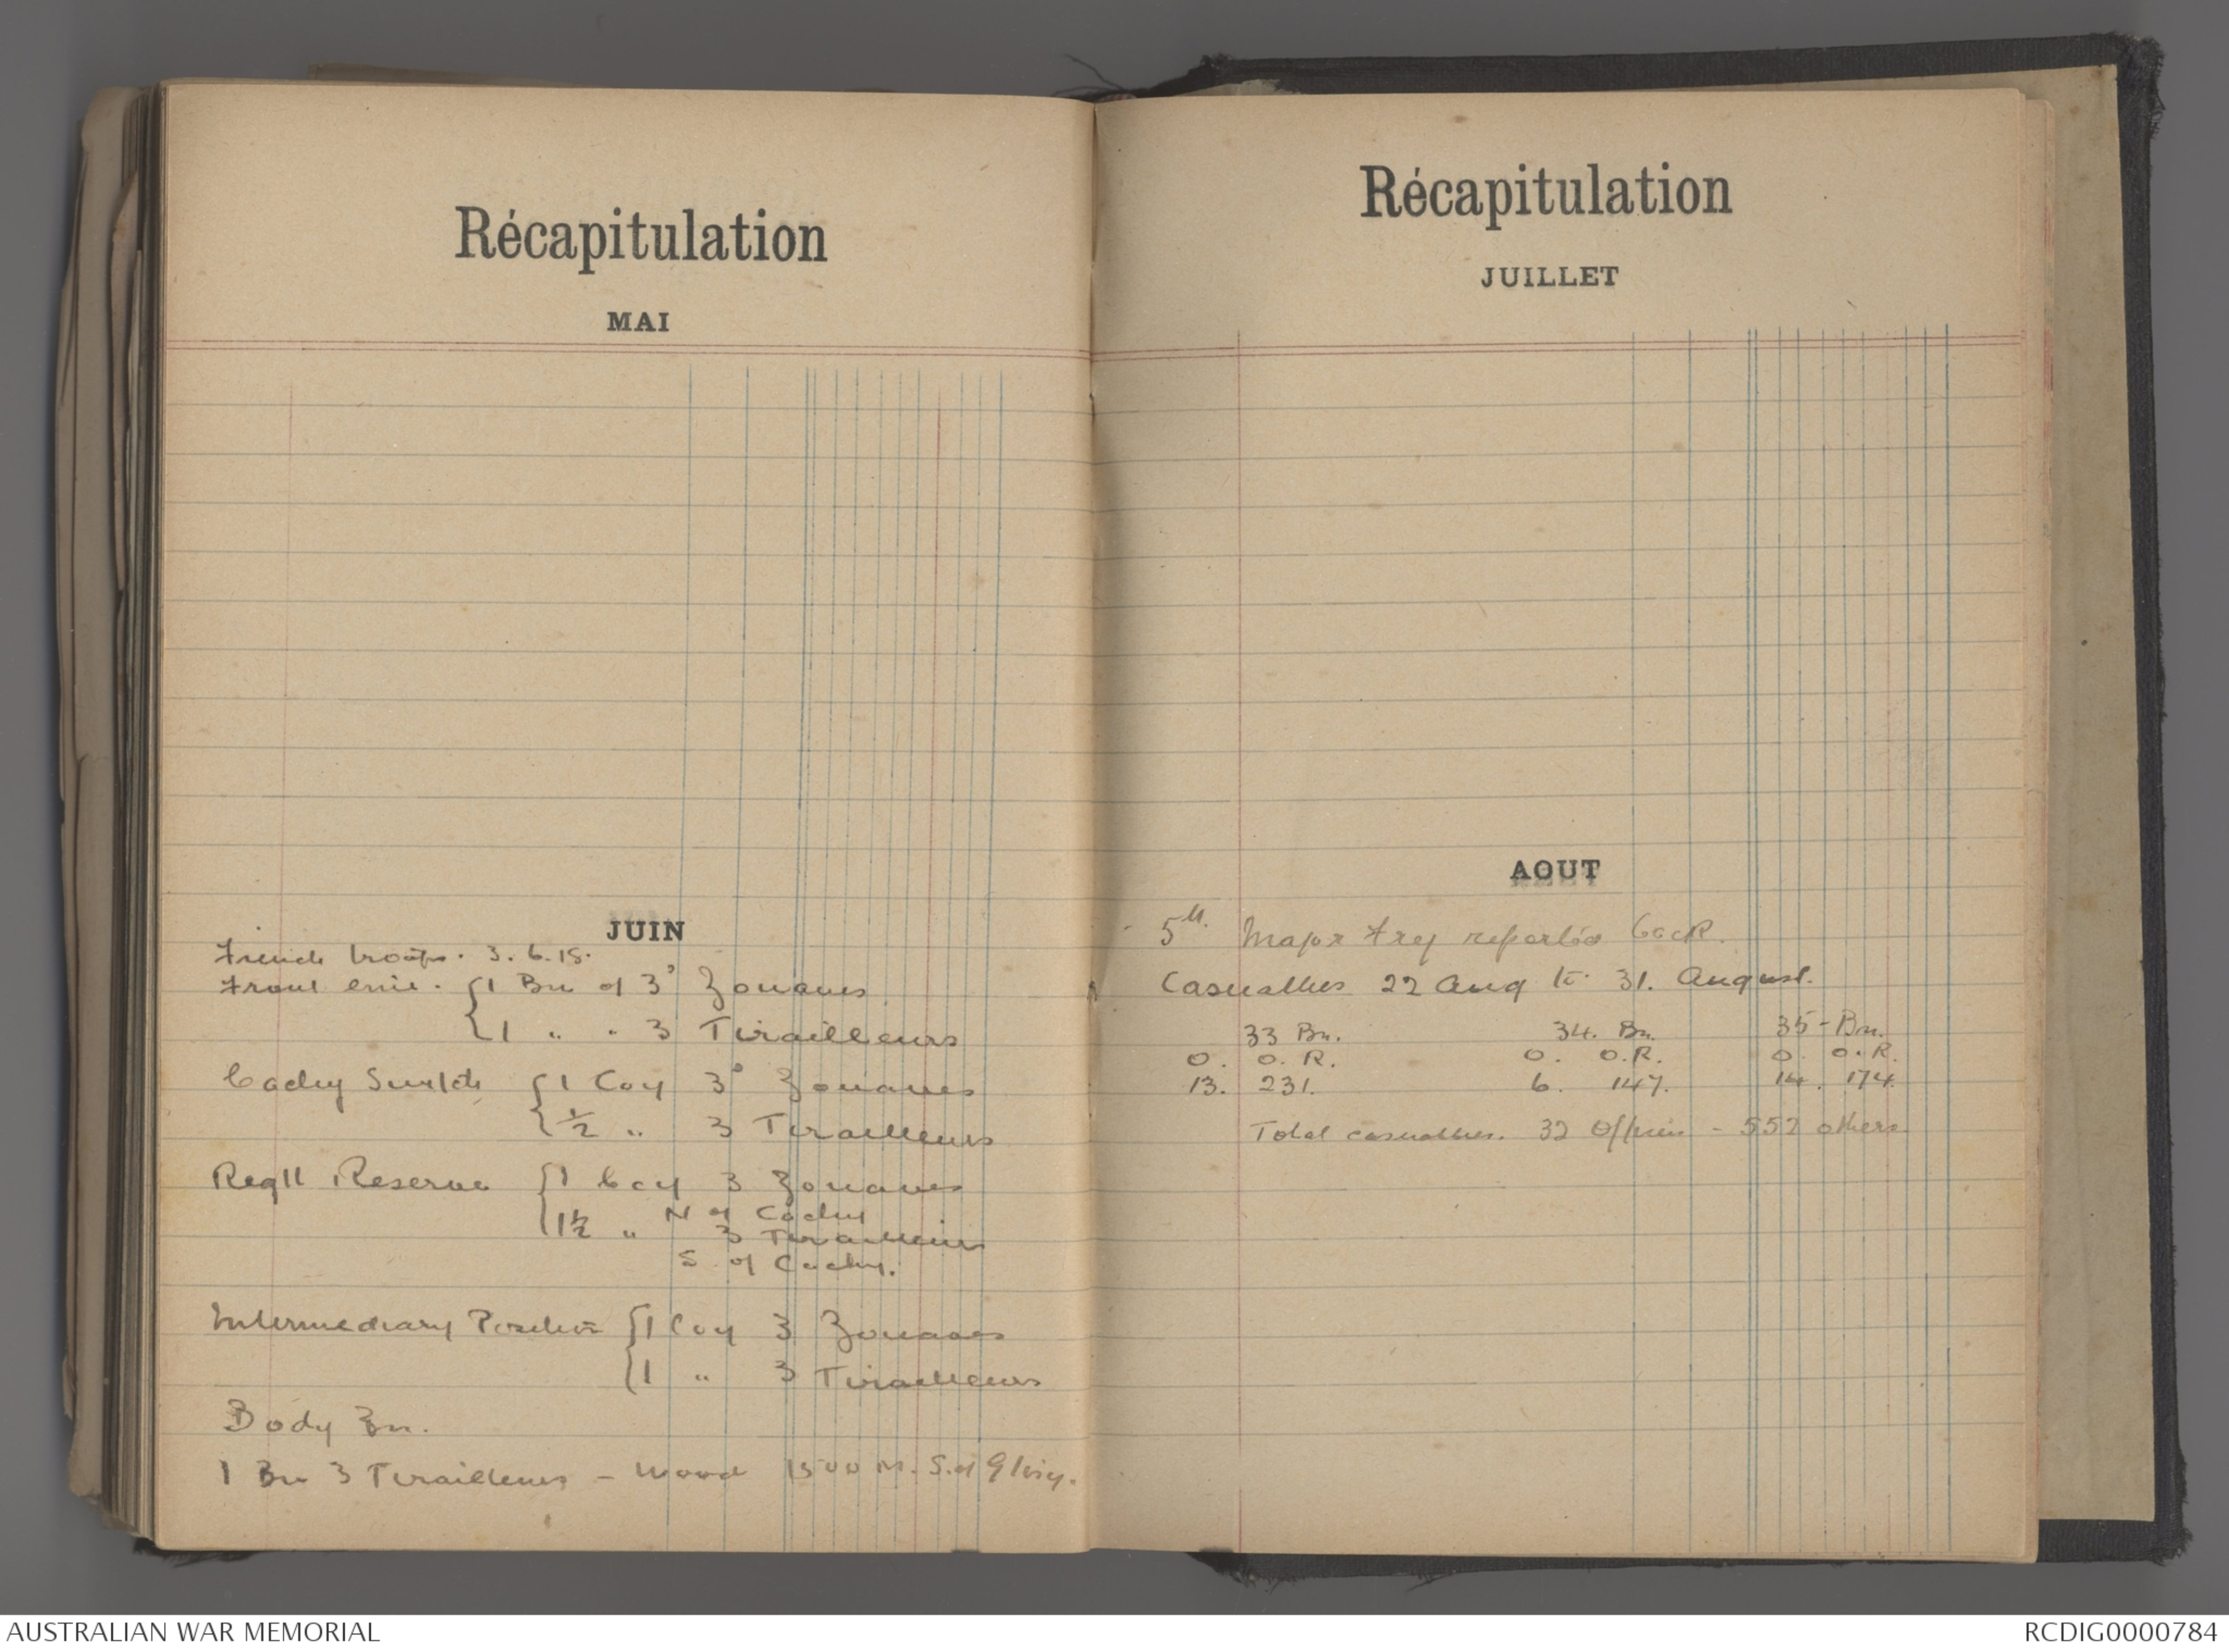 Récapitulation
MAI
JUIN
French troops. 3.6.18.
Front line. {1 Bn of 3° Zouaves
{1 " " 3 Tirailleurs
Cachy Switch {1 Coy 3° Zouaves
{½ " 3 Tirailleurs
Regtl Reserve {1 Coy 3 Zouaves
N of Cachy
{1½ " 3 Tirailleurs
S of Cachy.
Intermediary Position {1 Coy 3 Zouaves
{1 " 3 Tirailleurs
Body Bn.
1 Bn 3 Tirailleurs - Wood 1500 M. S. of Glisy.
Récapitulation
JUILLET
AOUT
5th. Major Fry reported back.
Casualties 22 Aug to 31. August.
33 Bn. 34. Bn. 35 - Bn.
O. O.R. O. O.R. O. O.R.
13. 231. 6. 147. 14. 174.
Total casualties. 32 Officers - 552 others
AUSTRALIAN WAR MEMORIAL
RCDIG0000784